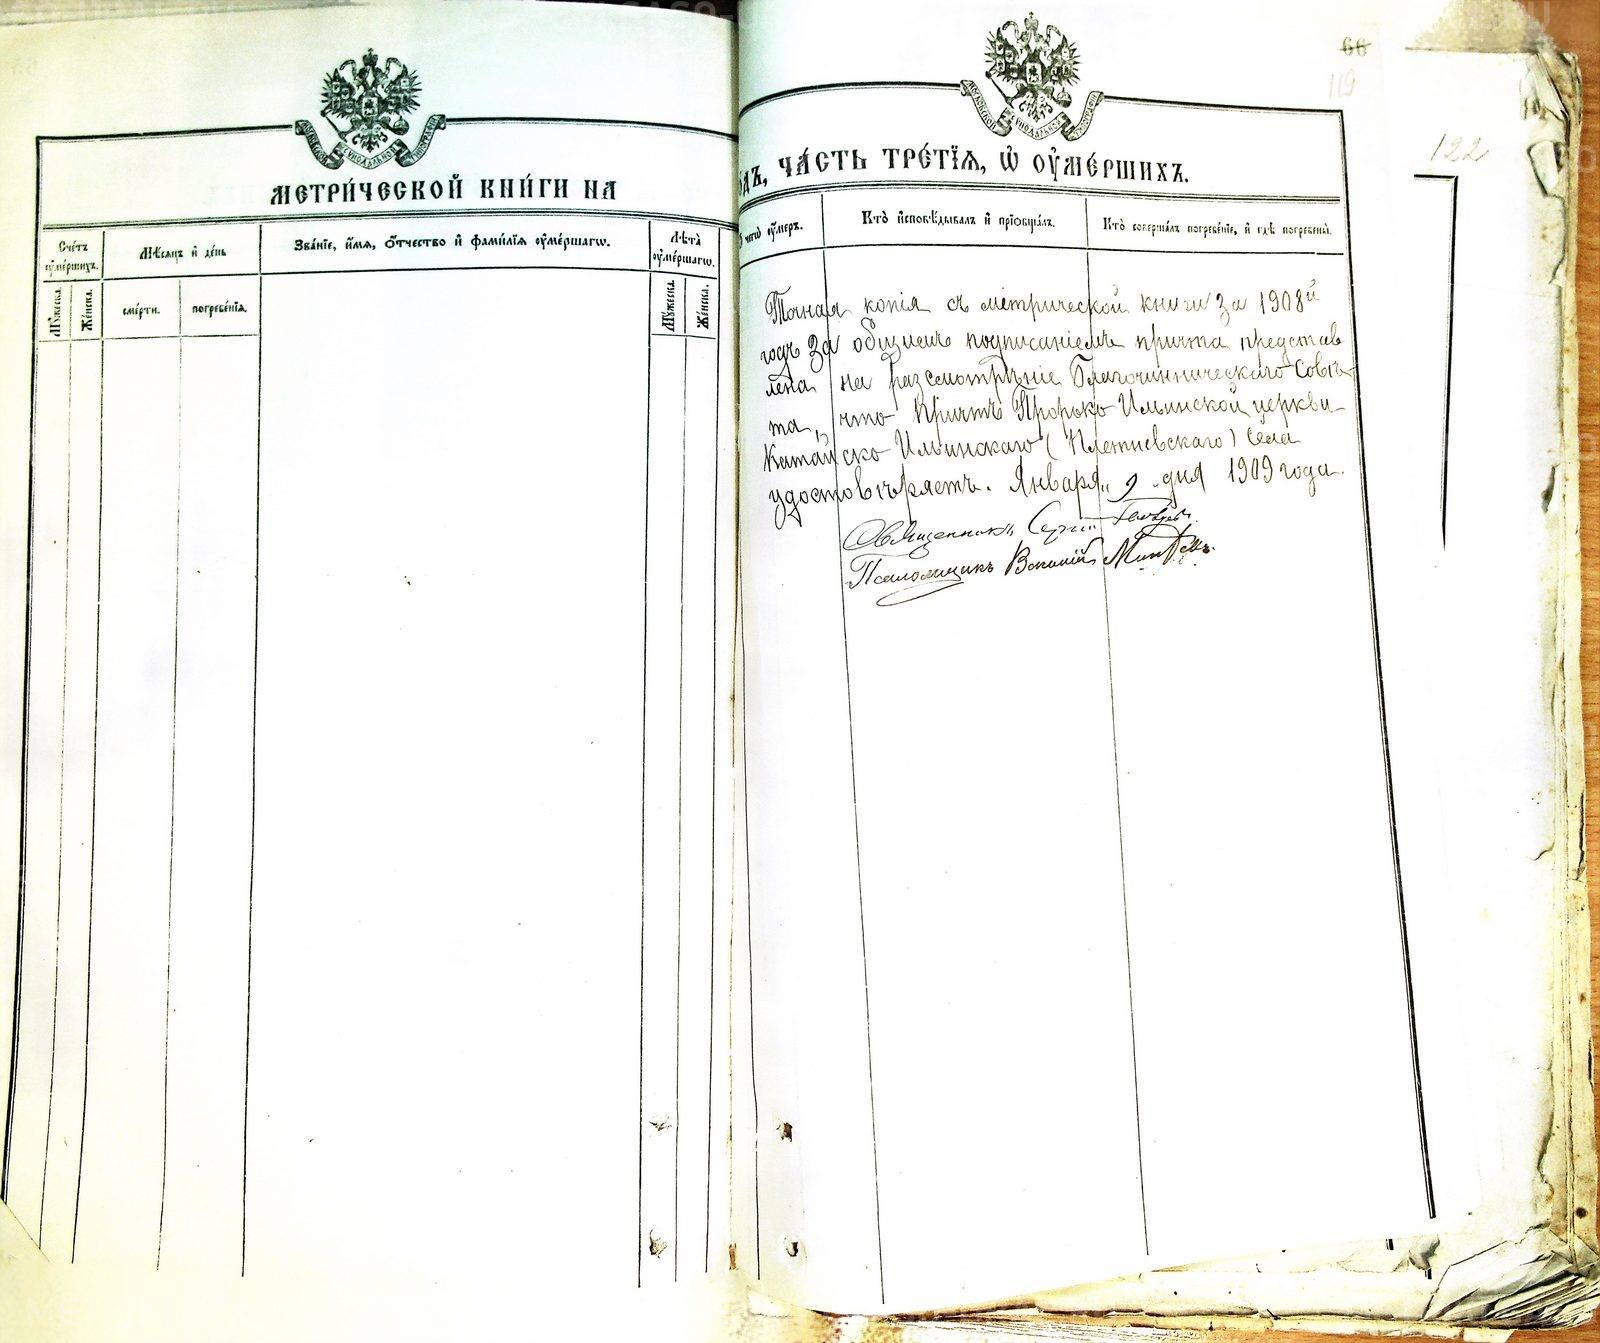 МОСКОВСКОЙ СѴНОДАЛЬНОЙ ТИПОГРАФІИ
МЕТРИ́ЧЕСКОЙ КНИ́ГИ НА
Сче́тъ ᲂу҆ме́ршихъ.
Мѣ́сяцъ и҆ де́нь
Зва́нїе, и҆́мѧ, ѻ҆́тчество и҆ фами́лїѧ ᲂу҆ме́ршагѡ.
Лѣ́та ᲂу҆ме́ршагѡ.
Мꙋ́жеска.
Же́нска.
сме́рти.
погребе́нїѧ.
Мꙋ́жеска.
Же́нска.
66
119
122
МОСКОВСКОЙ СѴНОДАЛЬНОЙ ТИПОГРАФІИ
ДЪ, ЧА́СТЬ ТРЕ́ТЇѦ, Ѡ҆ ᲂУ҆МЕ́РШИХЪ.
чегѡ̀ ᲂу҆́меръ.
Кто̀ и҆сповѣ́дывалъ и҆ прїѡбща́лъ.
Кто̀ соверша́лъ погребе́нїе, и҆ гдѣ̀ погребены̀.
Точная копія съ метрической книги за 1908й
годъ за общимъ подписаніемъ причта представ
лена на разсмотрѣніе Благочинническаго Совѣ-
та, что Причтъ Пророко Ильинской церкви
Катайско Ильинскаго (Плетневскаго) Села
удостовѣряетъ. Января 9 дня 1909 года.
Священникъ Сергій
Псаломщикъ